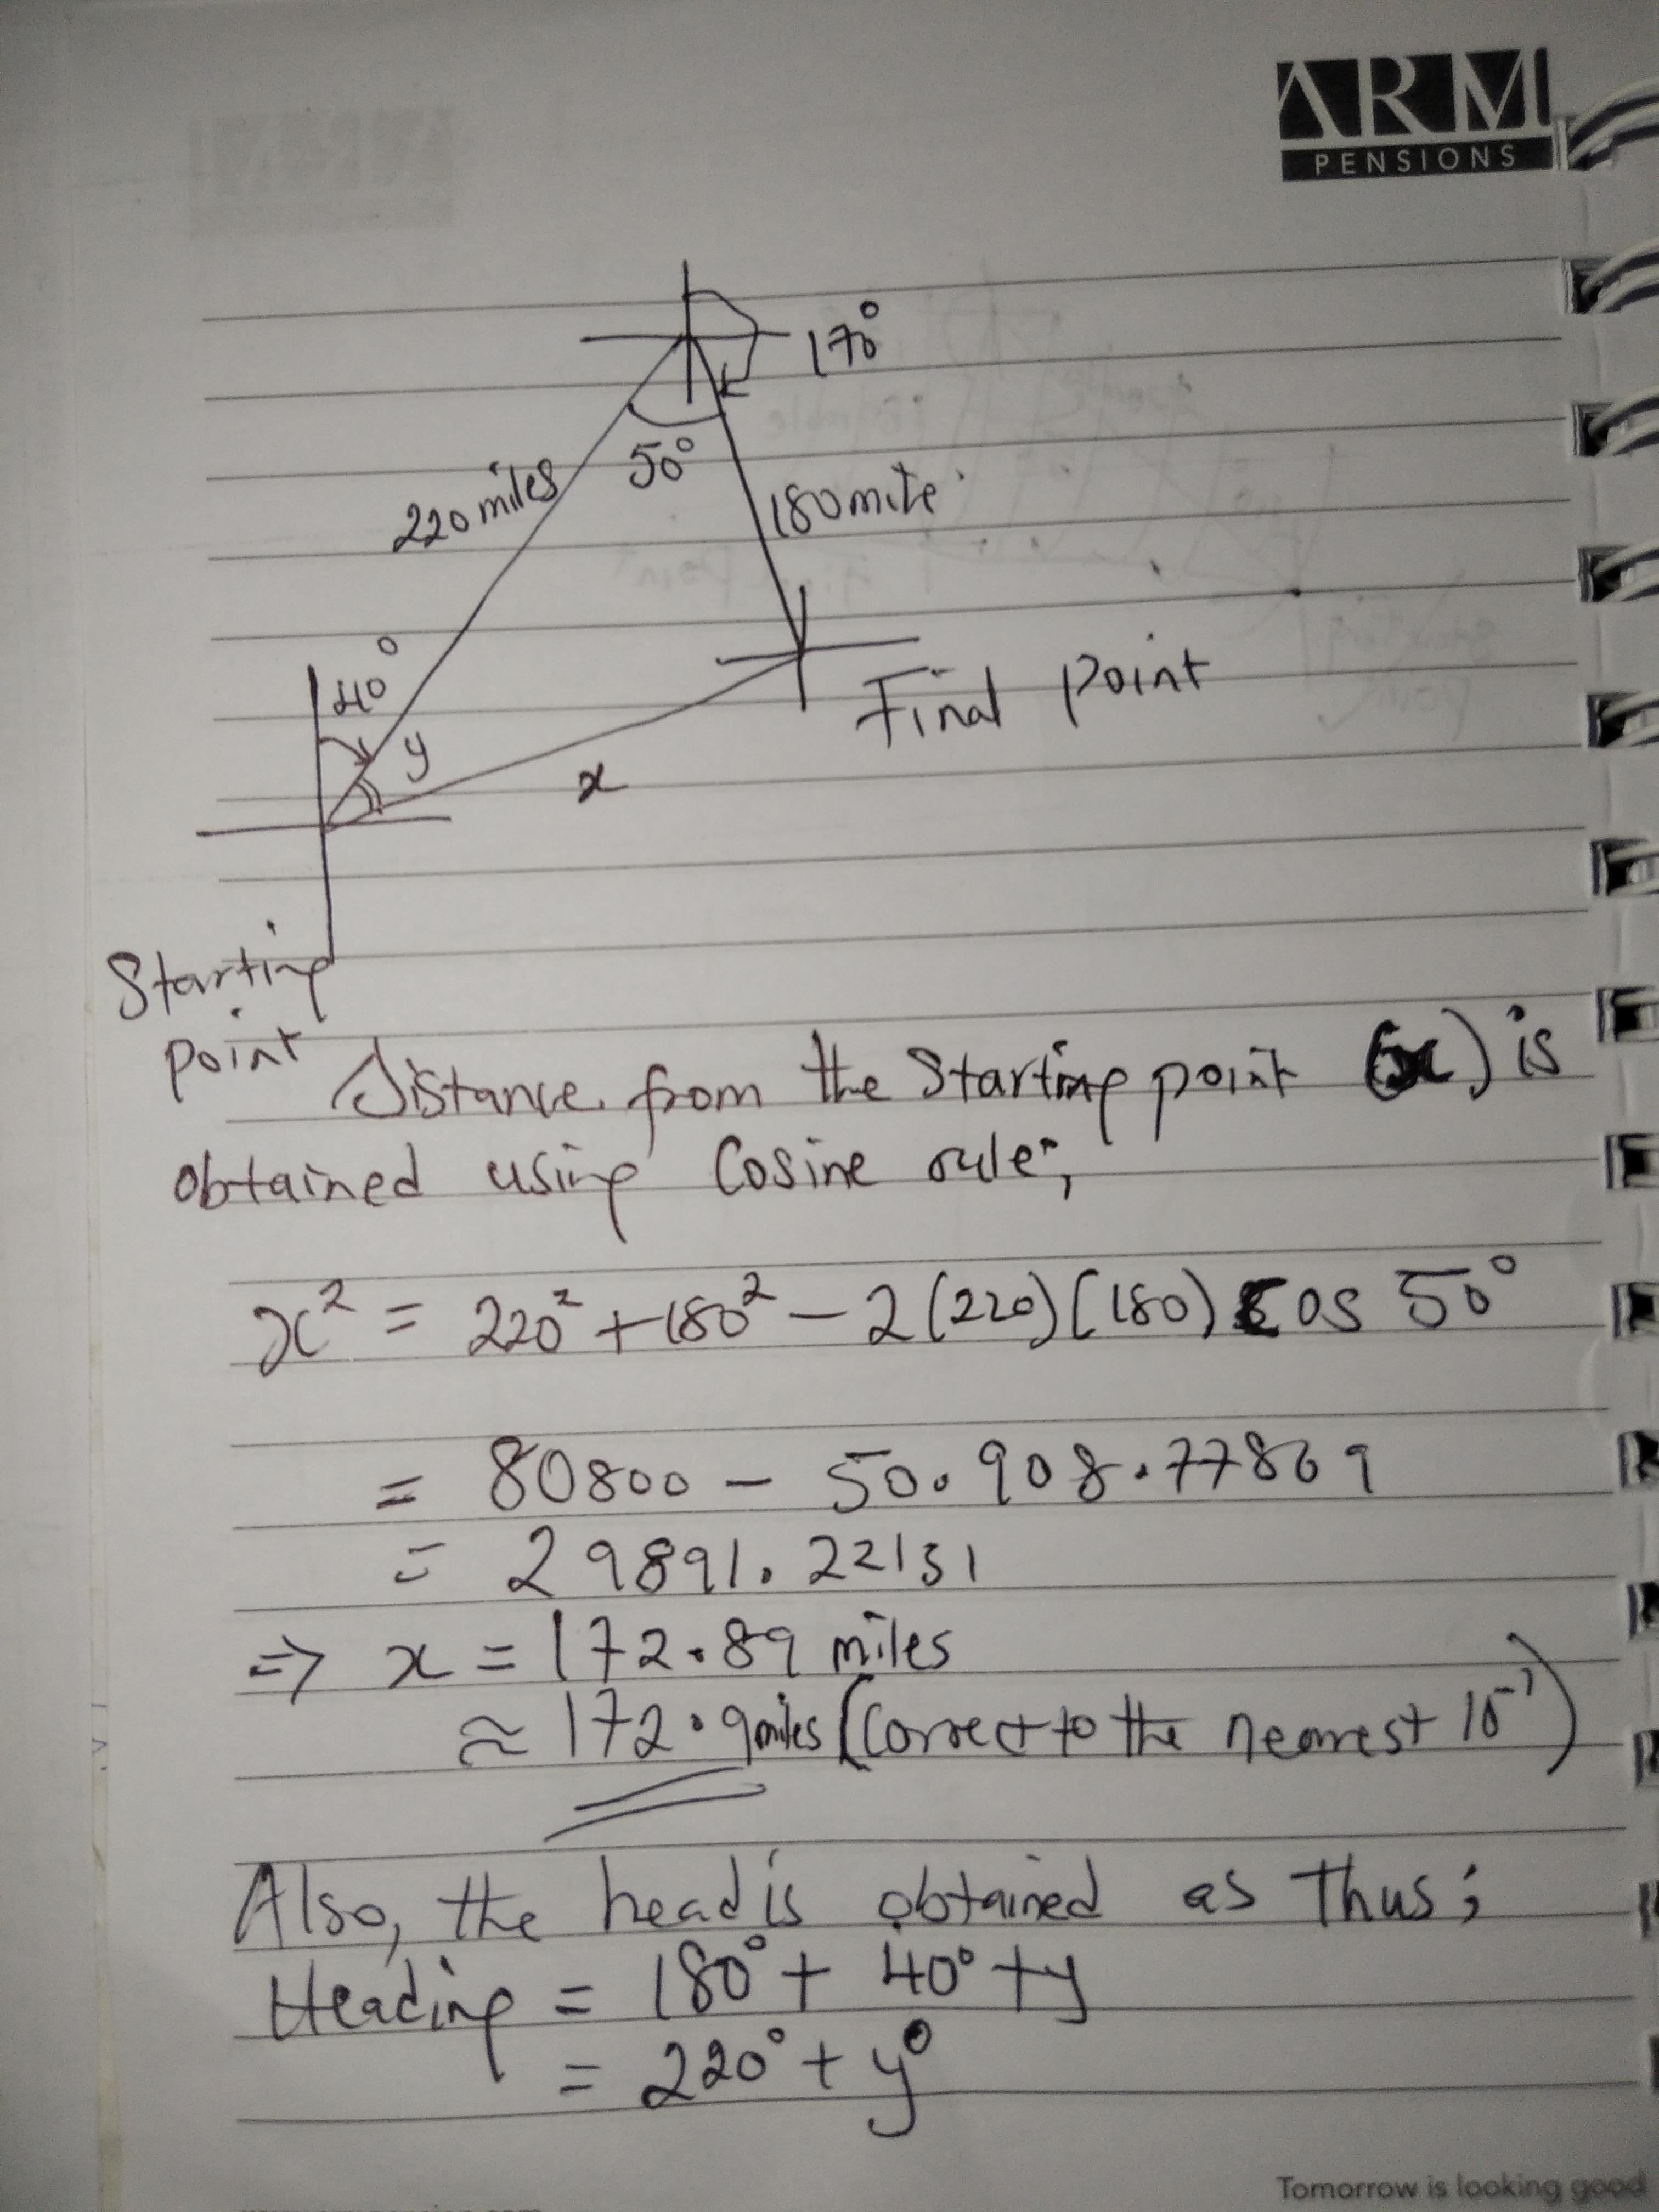 ARM
PENSIONS
170°
50°
220 miles
180 mile
40°
y
x
Final point
Starting
point
Distance from the Starting point (x) is
obtained using Cosine rule;
x² = 220² + 180² - 2(220)(180) Cos 50°
= 80800 - 50.908.77869
= 29891.22131
⇒ x = 172.89 miles
≈ 172.9miles (Correct to the nearest 10⁻¹)
Also, the head is obtained as thus;
Heading = 180° + 40° + y
= 220° + y°
Tomorrow is looking good